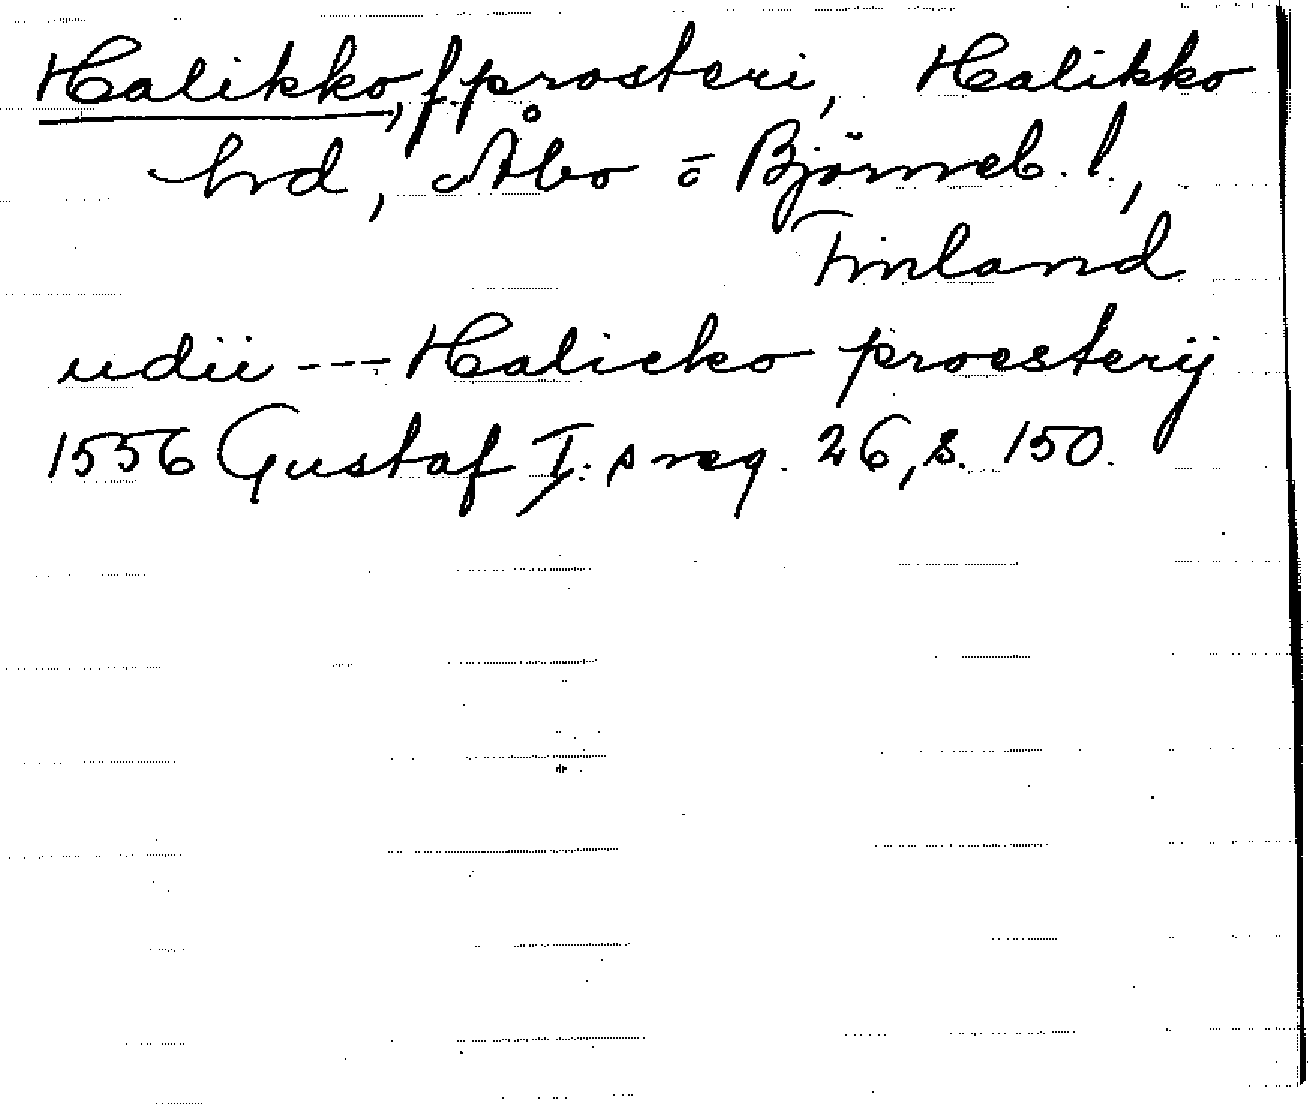 Halikko, f prosteri, Halikko
hrd, Åbo o Björneb. l.,
Finland
udii --- Halicko proesterij
1556 Gustaf I:s reg. 26, s. 150.